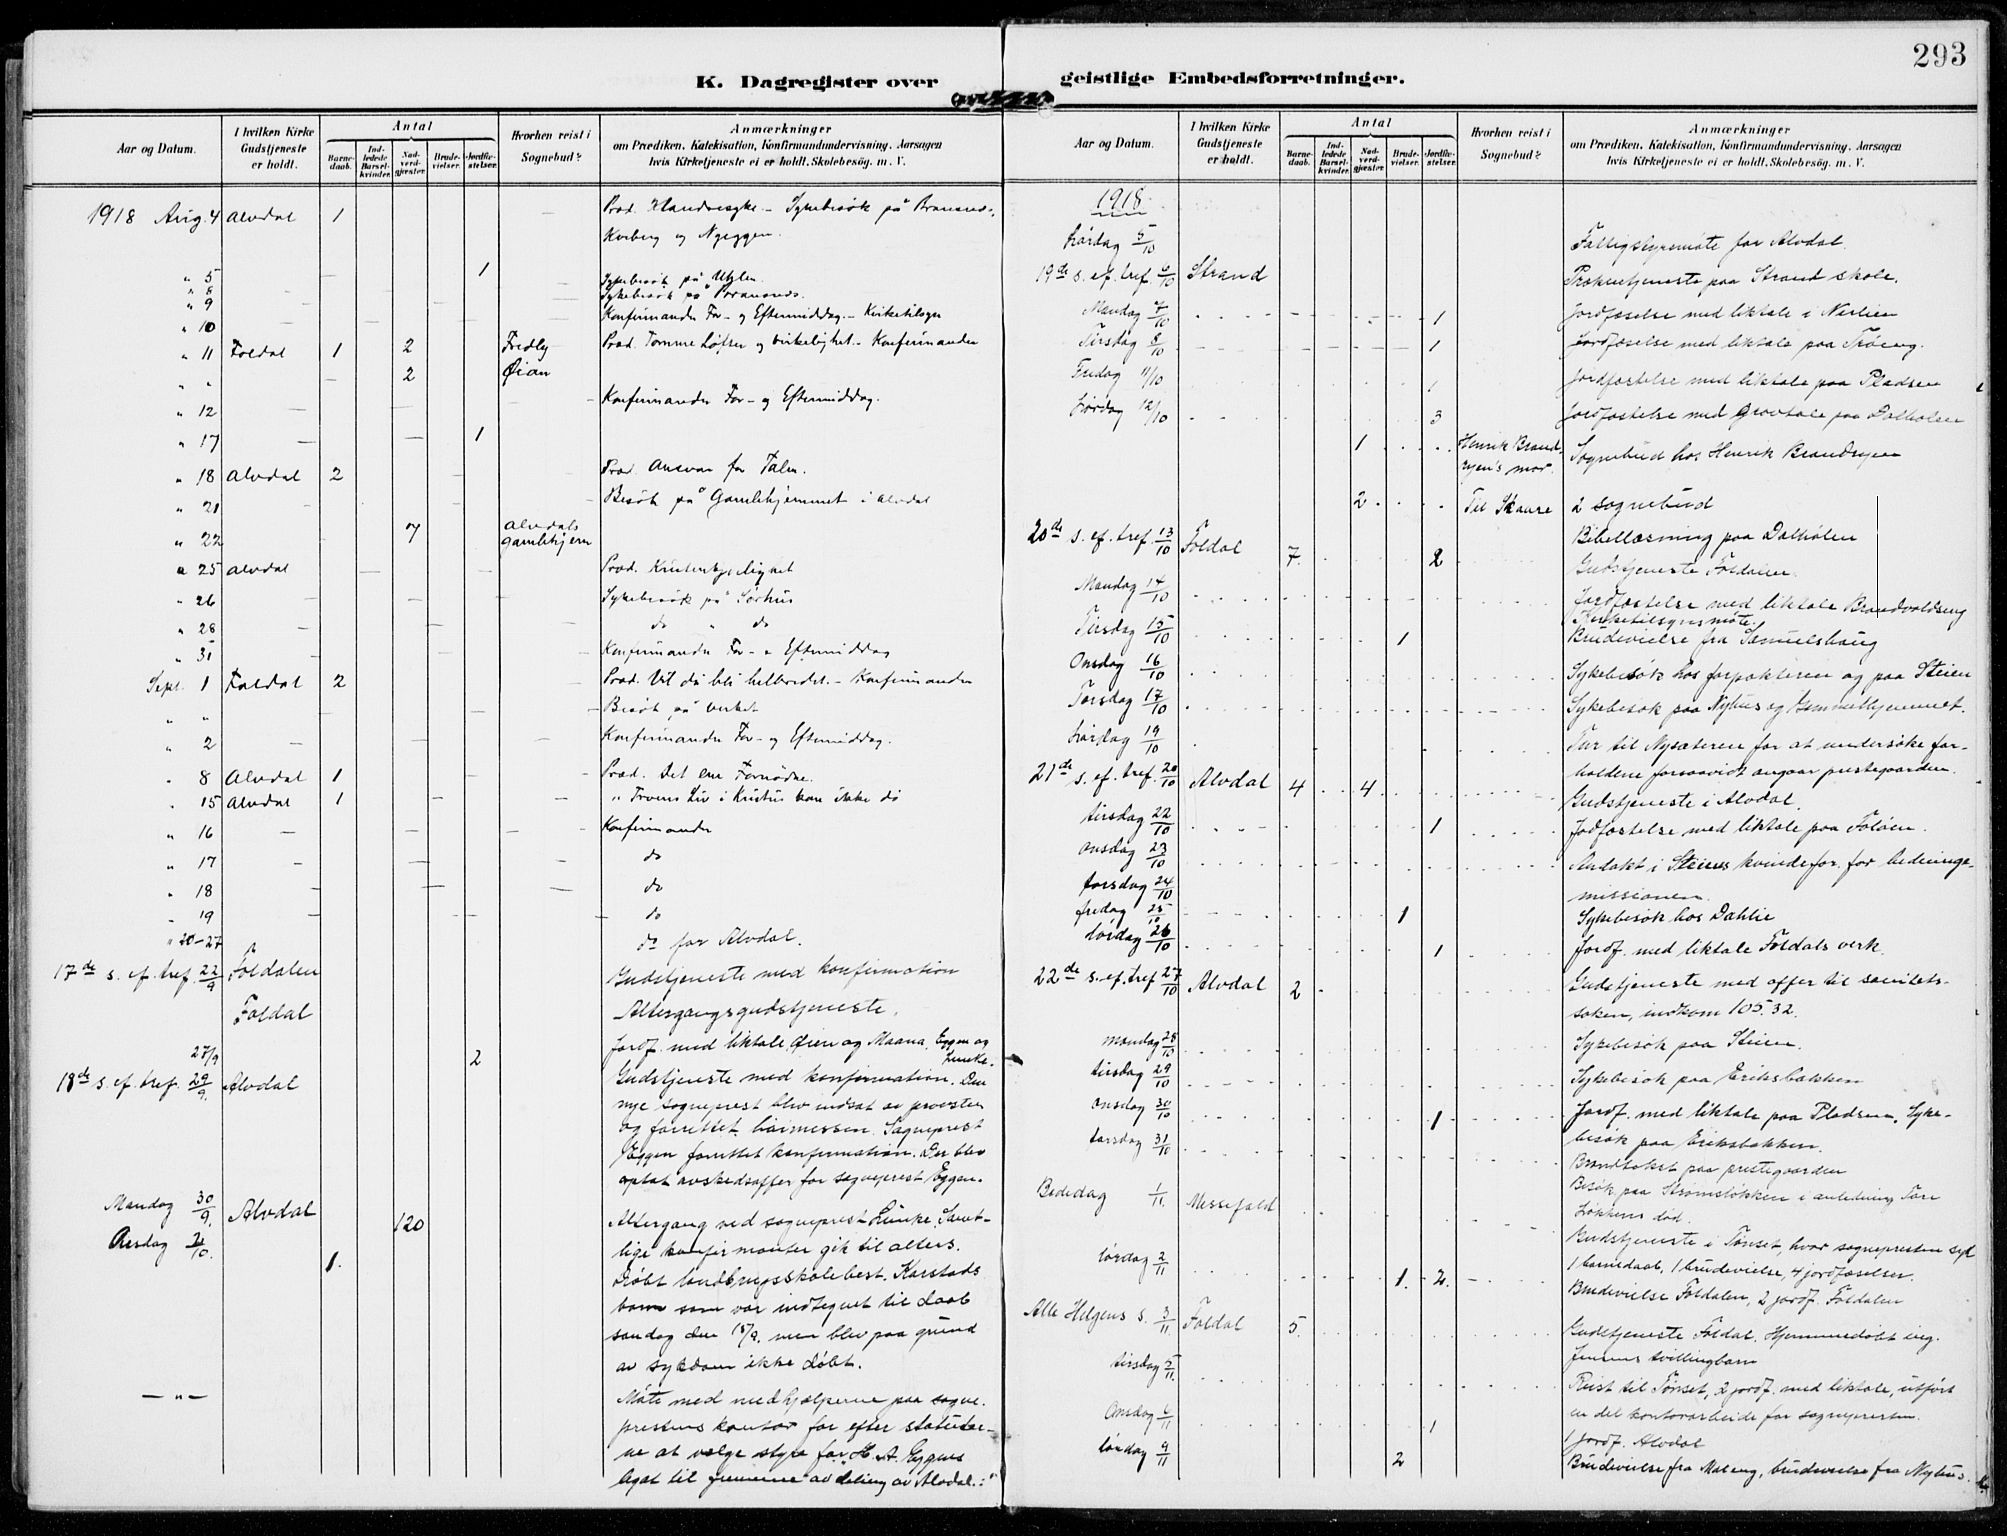 293
K. Dagregister over geistlige Embedsforretninger.
Aar og Datum.
I hvilken Kirke Gudstjeneste er holdt.
Antal
Barnedaab.
Indledede Barselkvinder.
Nadverdgjæster.
Brudevielser.
Jordfæstelser.
Hvorhen reist i Sognebud?
Anmærkninger
om Prædiken, Katekisation, Konfirmandundervisning, Aarsagen
hvis Kirketjeneste ei er holdt, Skolebesög, m. V.
1918 Aug. 4 Alvdal 1 Præd. - Sykebesøk på
og Nyeggen.
" 5 1
" 8 Sykebesøk på
" 9 Sykebesøk på
" 10 Konfirmander For- og Eftermiddag. - Kirketilsyn
" 11 Foldal 1 2 Fredly Præd. Tomme Løfter og virkelighet. - Konfirmander
" " 2 Øian
" 12 Konfirmander For- og Eftermiddag.
" 17 1
" 18 Alvdal 2 Præd. Ansvar for Talen.
" 21 Besøk på Gamlehjemmet i Alvdal
" 22 7 Alvdals gamlehjem
" 25 Alvdal Præd.
" 26 Sykebesøk på Sørhus
" 28 do " do
" 31 Konfirmander For- & Eftermiddag
Sept. 1 Foldal 2 Præd. Vil du bli helbredet. - Konfirmander
" " Besøk på verket
" 2 Konfirmander For- og Eftermiddag.
" 8 Alvdal 1 Præd. Det ene Fornødne.
" 15 Alvdal 1 " Troens Liv i Kristus kan ikke dø
" 16 Konfirmander
" 17 do
" 18 do
" 19 do
" 20-27 do for Alvdal.
17de s. ef. tref. 22/9 Foldalen Gudstjeneste med konfirmation
Foldal Altergangsgudstjeneste.
27/9 2 Jordf. med liktale, Øien og Maana, Eggen og Lunke.
18de s. ef. tref. 29/9. Alvdal Gudstjeneste med konfirmation. Den
nye sogneprest blev indsat av provsten
og forrettet. Sogneprest
Eggen forrettet konfirmation. Der blev
optat avskedsoffer for sogneprest Eggen.
Mandag 30/9. Alvdal 120 Altergang ved sogneprest Lunke. Samt-
lige konfirmanter gik til alters.
Onsdag 2/10. 1. Døbt landbrugsskolebest. Karstads
barn som var indtegnet til daab
søndag den 15/9. men blev paa grund
av sykdom ikke døbt.
— " — Møte med medhjælperne paa sogne-
prestens kontor for efter statuter-
ne at vælge styre for H. A. Eggens
legat til av deling av Alvdal.
Aar og Datum.
I hvilken Kirke Gudstjeneste er holdt.
Antal
Barnedaab.
Indledede Barselkvinder.
Nadverdgjæster.
Brudevielser.
Jordfæstelser.
Hvorhen reist i Sognebud?
Anmærkninger
om Prædiken, Katekisation, Konfirmandundervisning, Aarsagen
hvis Kirketjeneste ei er holdt, Skolebesög, m. V.
1918.
Lørdag 5/10 Fattigstyremøte for Alvdal.
19de s. ef. tref. 6/10 Strand Prøkentjeneste paa Strand skole.
Mandag 7/10 1 Jordfæstelse med liktale i Nerlien
Tirsdag 8/10 1 Jordfæstelse med liktale paa Trøeng.
Fredag 11/10 1 Jordfæstelse med liktale paa Pladsen
Lørdag 12/10 3 Jordfæstelse med gravtale paa Dalholen
1 Henrik Brandryen's mor. Sognebud hos Henrik Brandryen
2 Til Skaure 2 sognebud
Bibellæsning paa Dalholen
20de s. ef. tref. 13/10 Foldal 7. 2 Gudstjeneste Foldalen.
Mandag 14/10 Jordfæstelse med liktale Brandvoldseng
Kirketilsynsmøte.
Tirsdag 15/10 1 Brudevielse fra Samuelshaug
Onsdag 16/10 Sykebesøk hos forpakteren og paa Steien
Torsdag 17/10 Sykebesøk paa Nyhus og Gammelhjemmet.
Lørdag 19/10 Tur til Nysæteren for at undersøke for-
holdene forsaavidt angaar prestegaarden.
21de s. ef. tref. 20/10 Alvdal 4 4 Gudstjeneste i Alvdal.
tirsdag 22/10 1 Jordfæstelse med liktale paa Foløen.
onsdag 23/10 Andakt i Steiens kvindefor. for hedninge-
missionen.
torsdag 24/10
fredag 25/10 1 Sykebesøk hos Dahlie
lørdag 26/10 1 Jordf. med liktale Foldals verk.
22de s. ef. tref. 27/10 Alvdal 2 Gudstjeneste med offer til sanitets-
saken, indkom 105.32.
mandag 28/10 Sykebesøk paa Steien.
tirsdag 29/10 Sykebesøk paa Eriksbakken
onsdag 30/10 1 Jordf. med liktale paa Pladsen. Syke-
besøk paa Eriksbakken.
torsdag 31/10 Brandtakst paa prestegaarden
Besøk paa Strømsløkken i anledning Tore
Løkkens død.
Bededag 1/11. Messefald Gudstjeneste i Tønset, hvor sognepresten syk
1 barnedaab, 1 brudevielse, 4 jordfæstelser.
lørdag 2/11 1. 2. Brudevielse Foldalen, 2 jordf. Foldalen
Alle Helgens s. 3/11. Foldal 5. Gudstjeneste Foldal. Hjemmedøbt ing.
Jensens tvillingbarn
tirsdag 5/11. Reist til Tønset, 2 jordf. med liktale, utført
en del kontorarbeide for sognepresten.
Onsdag 6/11 1 1 jordf. Alvdal
lørdag 9/11 2 Brudevielse fra Moseng, brudevielse fra Nyhus.